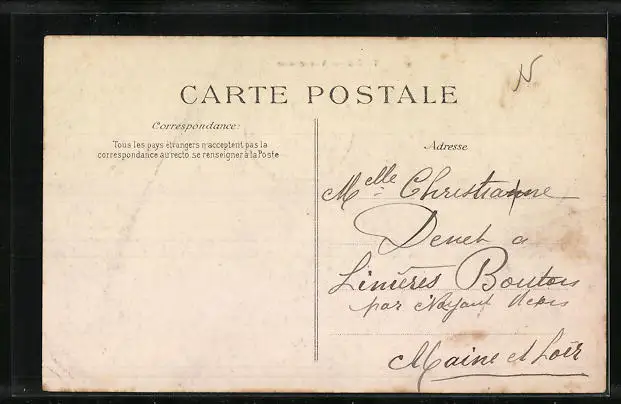 N
CARTE POSTALE
Correspondance:
Tous les pays étrangers n'acceptent pas la
correspondance au recto. se renseigner à la Poste
Adresse
Melle Christianne
Denet a
Linières Bouton
par Noyant
Maine et Loir